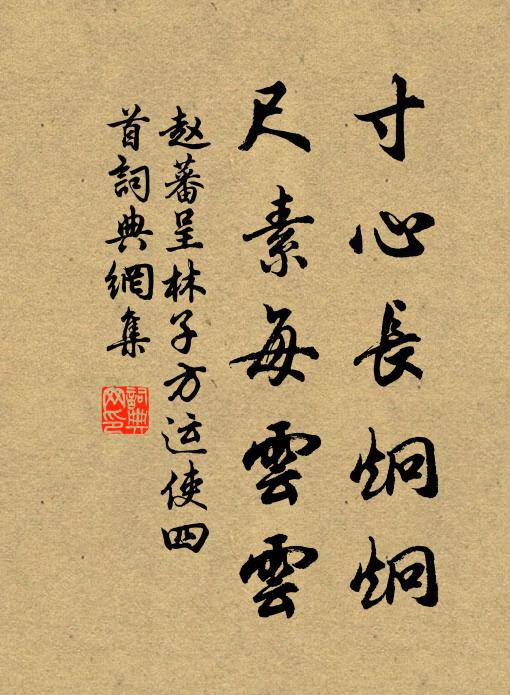 寸心長炯炯
尺素每雲雲
赵蕃呈林子方运使四
首詞典網集
詞典
网印